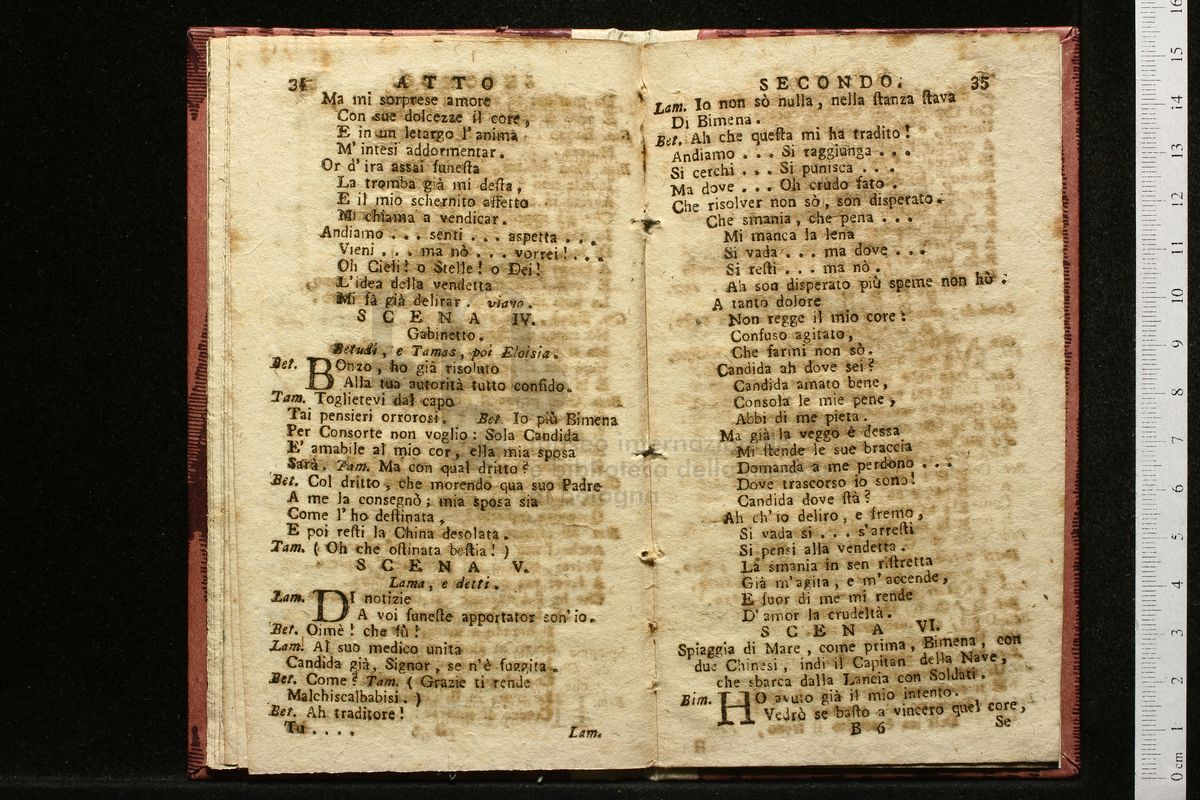 34 ATTO
Ma mi sorprese amore
Con sue dolcezze il core,
E in un letargo l'anima
M'intesi addormentar.
Or d'ira assai funeſta
La tromba già mi deſta,
E il mio schernito affetto
Mi chiama a vendicar.
Andiamo . . . senti . . . aspetta . . .
Vieni . . . ma nò . . . vorrei! . . .
Oh Cieli! o Stelle! o Dei!
L'idea della vendetta
Mi fà già delirar. viano.
SCENA IV.
Gabinetto.
Betudi, e Tamas, poi Eloisia.
Bet. BOnzo, ho già risoluto
Alla tua autorità tutto confido.
Tam. Toglietevi dal capo
Tai pensieri orrorosi. Bet. Io più Bimena
Per Consorte non voglio: Sola Candida
E' amabile al mio cor, ella mia sposa
Sarà. Tam. Ma con qual dritto?
Bet. Col dritto, che morendo qua suo Padre
A me la consegnò; mia sposa sia
Come l'ho deſtinata,
E poi reſti la China desolata.
Tam. (Oh che oſtinata beſtia!)
SCENA V.
Lama, e detti.
Lam. DI notizie
A voi funeſte apportator son'io.
Bet. Oimè! che fù!
Lam. Al suo medico unita
Candida già, Signor, se n'è fuggita.
Bet. Come? Tam. (Grazie ti rende
Malchiscalbabisi.)
Bet. Ah traditore!
Tu . . . .
Lam.
SECONDO. 35
Lam. Io non sò nulla, nella ſtanza ſtava
Di Bimena.
Bet. Ah che queſta mi ha tradito!
Andiamo . . . Si raggiunga . . .
Si cerchi . . . Si punisca . . .
Ma dove . . . Oh crudo fato.
Che risolver non sò, son disperato.
Che smania, che pena . . .
Mi manca la lena
Si vada . . . ma dove . . .
Si reſti . . . ma nò.
Ah son disperato più speme non hò.
A tanto dolore
Non regge il mio core:
Confuso agitato,
Che farmi non sò.
Candida ah dove sei?
Candida amato bene,
Consola le mie pene,
Abbi di me pieta.
Ma già la veggo è dessa
Mi ſtende le sue braccia
Domanda a me perdono . . .
Dove trascorso io sono!
Candida dove ſtà?
Ah ch'io deliro, e fremo,
Si vada si . . . s'arreſti
Si pensi alla vendetta.
La smania in sen riſtretta
Già m'agita, e m'accende,
E fuor di me mi rende
D'amor la crudeltà.
SCENA VI.
Spiaggia di Mare, come prima, Bimena, con
due Chinesi, indi il Capitan della Nave,
che sbarca dalla Lancia con Soldati.
Bim. HO avuto già il mio intento.
Vedrò se baſto a vincero quel core,
B 6 Se